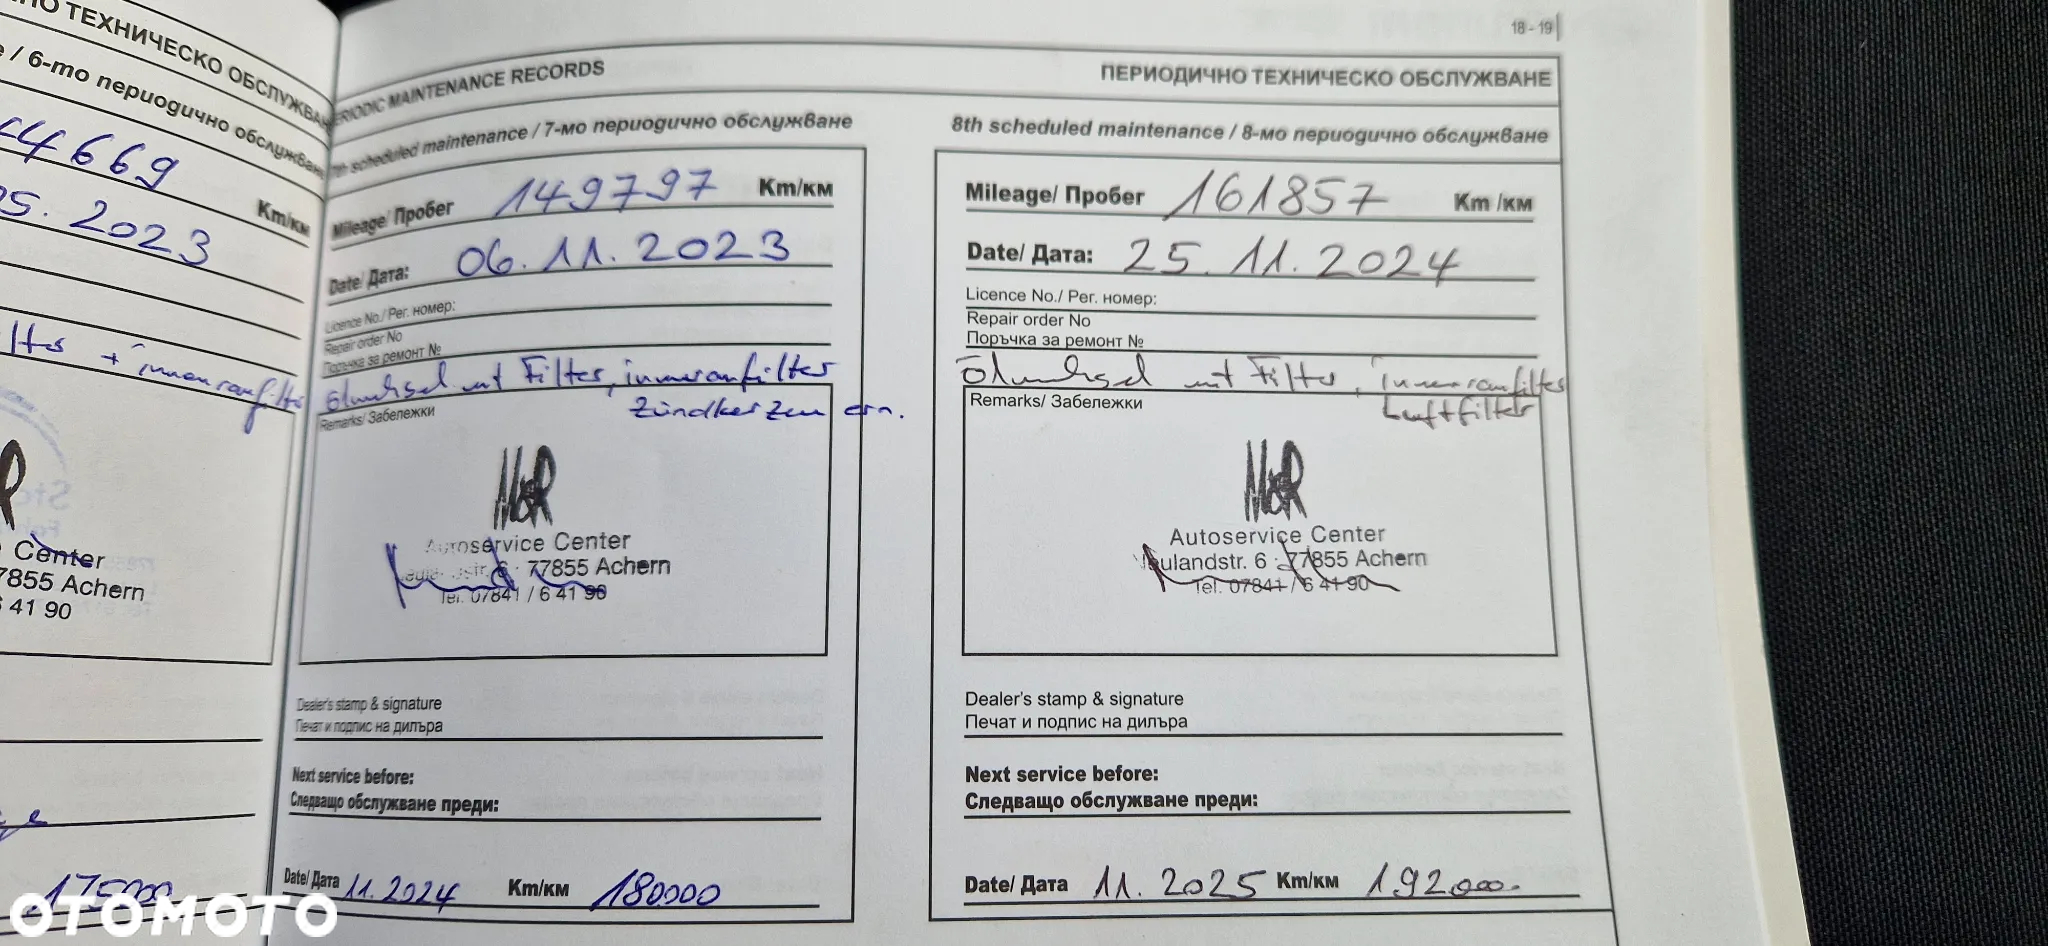 НО ТЕХНИЧЕСКО ОБСЛУЖВАН
/ 6-то периодично обслужване
44669
Km/км
05. 2023
lter + innenranfilter
Center
77855 Achern
6 41 90
175000
18 - 19
PERIODIC MAINTENANCE RECORDS
7th scheduled maintenance / 7-мо периодично обслужване
Mileage/ Пробег 149797 Km/км
Date/ Дата: 06.11.2023
Licence No./ Рег. номер:
Repair order No
Поръчка за ремонт №
Ölwechsel mit Filter, innenranfilter
Zündkerzen ern.
Remarks/ Забележки
Autoservice Center
6 · 77855 Achern
Tel. 07841 / 6 41 90
Dealer's stamp & signature
Печат и подпис на дилъра
Next service before:
Следващо обслужване преди:
Date/ Дата 11.2024 Km/км 180000
ПЕРИОДИЧНО ТЕХНИЧЕСКО ОБСЛУЖВАНЕ
8th scheduled maintenance / 8-мо периодично обслужване
Mileage/ Пробег 161857 Km /км
Date/ Дата: 25.11.2024
Licence No./ Рег. номер:
Repair order No
Поръчка за ремонт №
Ölwechsel mit Filter, innenranfilter
Luftfilter
Remarks/ Забележки
Autoservice Center
6 · 77855 Achern
Tel. 07841 / 6 41 90
Dealer's stamp & signature
Печат и подпис на дилъра
Next service before:
Следващо обслужване преди:
Date/ Дата 11.2025 Km/км 192000.
OTOMOTO